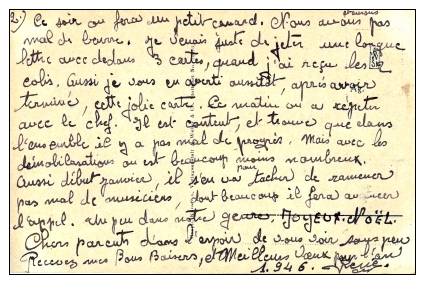 2) Ce soir on fera un petit canard. Nous avons pas
mal de beurre. Je venais juste de jeter une longue
lettre avec dedans 3 cartes, quand j'ai reçu les
colis. Aussi je vous en averti aussitôt, après avoir
terminé, cette jolie carte. Ce matin on a répeter
avec le chef. Il est content, et trouve que dans
l'ensemble il y a pas mal de progrès. Mais avec les
démobilisations on est beaucoup moins nombreux.
Aussi début janvier, il s'en va pour tacher de ramener
pas mal de musiciens, dont beaucoup il fera
l'appel. Un peu dans notre genre. JOYEUX NOËL.
Chers parents dans l'espoir de vous voir sous peu
Recevez mes Bons Baisers, et Meilleurs Vœux pour l'an
1.946. René